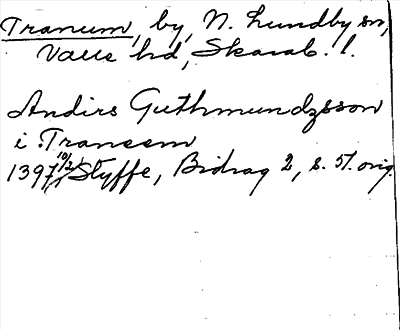 Tranum, by, N. Lundby sn,
Valle hd, Skarab. l.
Andirs Guthmundzsson
i Tranem
1397 10/2 Styffe, Bidrag 2, s. 57. orig.